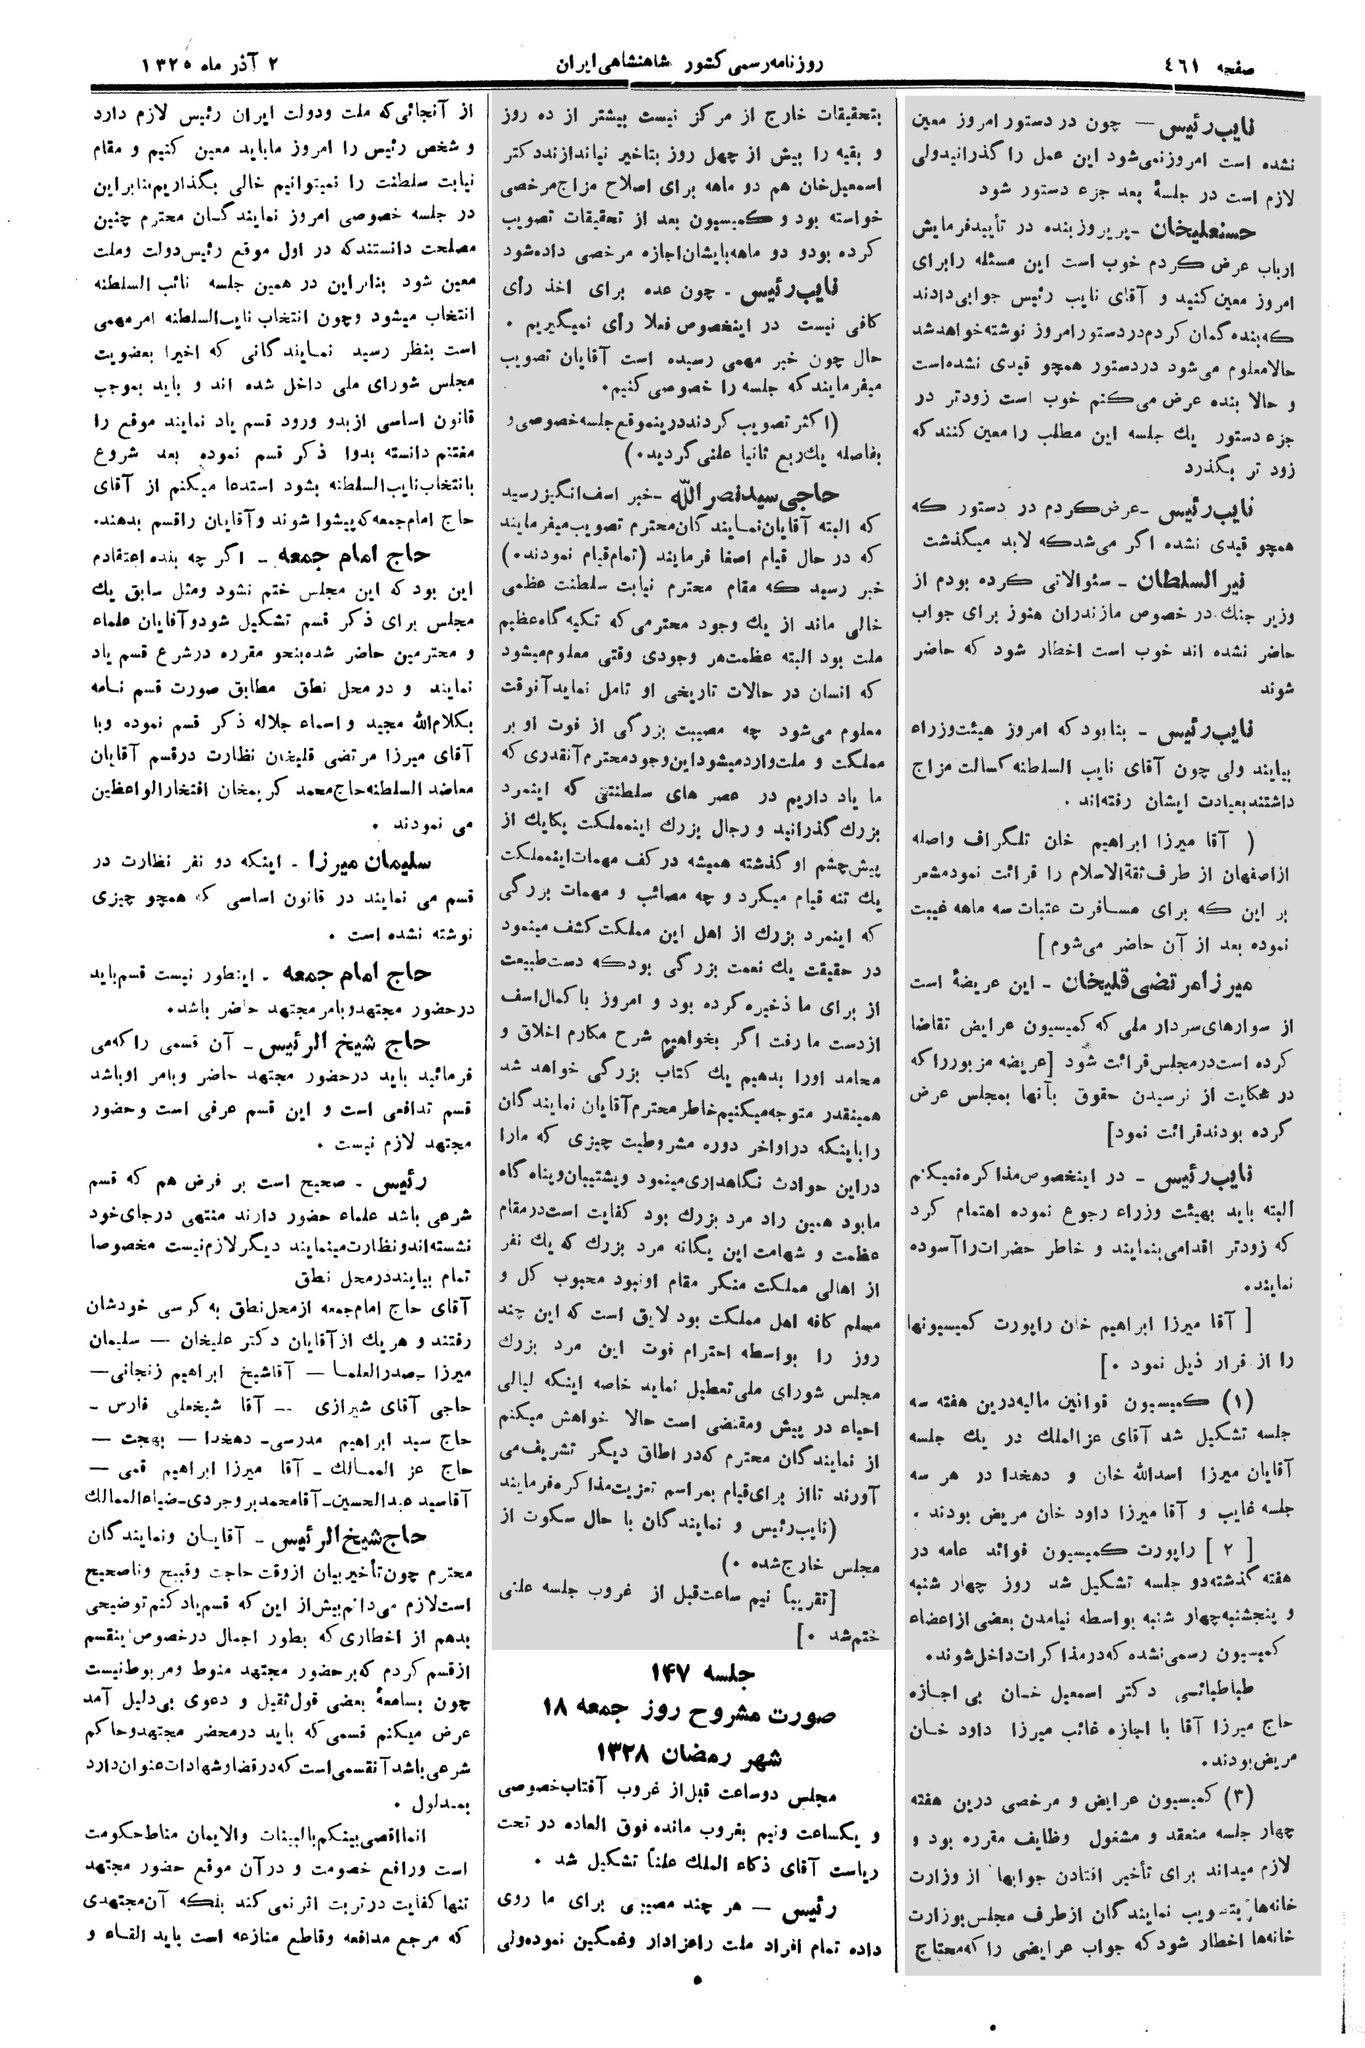 صفحه ٤٦١
روزنامه رسمی کشور شاهنشاهی ایران
٢ آذر ماه ١٣٢٥
نایب رئیس — چون در دستور امروز معین
نشده است امروز نمی‌شود این عمل را گذرانید ولی
لازم است در جلسهٔ بعد جزء دستور شود
حسنعلیخان - پریروز بنده در تأیید فرمایش
ارباب عرض کردم خوب است این مسئله را برای
امروز معین کنید و آقای نایب رئیس جوابی دادند
که بنده گمان کردم در دستور امروز نوشته خواهد شد
حالا معلوم می‌شود در دستور همچو قیدی نشده است
و حالا بنده عرض می‌کنم خوب است زودتر در
جزء دستور یك جلسه این مطلب را معین کنند که
زود تر بگذرد
نایب رئیس - عرض کردم در دستور که
همچو قیدی نشده اگر می‌شد که لابد میگذشت
نیر السلطان - سئوالاتی کرده بودم از
وزیر جنك در خصوص مازندران هنوز برای جواب
حاضر نشده اند خوب است اخطار شود که حاضر
شوند
نایب رئیس - بنا بود که امروز هیئت وزراء
بیایند ولی چون آقای نایب السلطنه کسالت مزاج
داشتند بعیادت ایشان رفته‌اند .
( آقا میرزا ابراهیم خان تلگراف واصله
از اصفهان از طرف ثقة الاسلام را قرائت نمود مشعر
بر این که برای مسافرت عتبات سه ماهه غیبت
نموده بعد از آن حاضر می‌شوم ]
میرزا مرتضی قلیخان - این عریضهٔ است
از سوارهای سردار ملی که کمیسیون عرایض تقاضا
کرده است در مجلس قرائت شود [عریضه مزبور را که
در شکایت از نرسیدن حقوق بآنها بمجلس عرض
کرده بودند قرائت نمود]
نایب رئیس - در اینخصوص مذاکره نمیکنم
البته باید بهیئت وزراء رجوع نموده اهتمام کرد
که زودتر اقدامی بنمایند و خاطر حضرات را آسوده
نمایند.
[ آقا میرزا ابراهیم خان راپورت کمیسیونها
را از قرار ذیل نمود .]
(١) کمیسیون قوانین مالیه درین هفته سه
جلسه تشکیل شد آقای عز الملك در یك جلسه
آقایان میرزا اسدالله خان و دهخدا در هر سه
جلسه غایب و آقا میرزا داود خان مریض بودند .
[ ٢ ] راپورت کمیسیون فوائد عامه در
هفته گذشته دو جلسه تشکیل شد روز چهار شنبه
و پنجشنبه چهار شنبه بواسطه نیامدن بعضی از اعضاء
کمیسیون رسمی نشده که در مذاکرات داخل شوند.
طباطبائی دکتر اسمعیل خان بی اجازه
حاج میرزا آقا با اجازه غائب میرزا داود خان
مریض بودند.
(٣) کمیسیون عرایض و مرخصی درین هفته
چهار جلسه منعقد و مشغول وظایف مقرره بود و
لازم میداند برای تأخیر افتادن جوابها از وزارت
خانه‌ها بتصویب نمایندگان از طرف مجلس بوزارت
خانه‌ها اخطار شود که جواب عرایضی را که محتاج
بتحقیقات خارج از مرکز نیست بیشتر از ده روز
و بقیه را بیش از چهل روز بتاخیر نیاندازند دکتر
اسمعیل خان هم دو ماهه برای اصلاح مزاج مرخصی
خواسته بود و کمیسیون بعد از تحقیقات تصویب
کرده بود و دو ماهه بایشان اجازه مرخصی داده شود
نایب رئیس - چون عده برای اخذ رأی
کافی نیست در اینخصوص فعلا رأی نمیگیریم .
حال چون خبر مهمی رسیده است آقایان تصویب
میفرمایند که جلسه را خصوصی کنیم.
(اکثر تصویب کردند درینموقع جلسه خصوصی و
بفاصله یك ربع ثانیا علنی گردید.)
حاجی سید نصر الله - خبر اسف انگیز رسید
که البته آقایان نمایندگان محترم تصویب میفرمایند
که در حال قیام اصغا فرمایند (تمام قیام نمودند.)
خبر رسید که مقام محترم نیابت سلطنت عظمی
خالی ماند از یك وجود محترمی که تکیه گاه عظیم
ملت بود البته عظمت هر وجودی وقتی معلوم میشود
که انسان در حالات تاریخی او تامل نماید آنوقت
معلوم می‌شود چه مصیبت بزرگی از فوت او بر
مملکت و ملت وارد میشود این وجود محترم آنقدری که
ما یاد داریم در عصر های سلطنتی که اینمرد
بزرك گذرانید و رجال بزرك اینمملکت یکایك از
پیش چشم او گذشته همیشه در کف مهمات اینمملکت
یك تنه قیام میکرد و چه مصائب و مهمات بزرگی
که اینمرد بزرك از اهل این مملکت کشف مینمود
در حقیقت یك نعمت بزرگی بود که دست طبیعت
از برای ما ذخیره کرده بود و امروز با کمال اسف
از دست ما رفت اگر بخواهیم شرح مکارم اخلاق و
محامد او را بدهیم یك کتاب بزرگی خواهد شد
همینقدر متوجه میکنیم خاطر محترم آقایان نمایندگان
را باینکه در اواخر دوره مشروطیت چیزی که ما را
در این حوادث نگاهداری مینمود و پشتیبان و پناه گاه
ما بود همین راد مرد بزرك بود کفایت است در مقام
عظمت و شهامت این یگانه مرد بزرك که یك نفر
از اهالی مملکت منکر مقام او نبود محبوب کل و
مسلم کافه اهل مملکت بود لایق است که این چند
روز را بواسطه احترام فوت این مرد بزرك
مجلس شورای ملی تعطیل نماید خاصه اینکه لیالی
احیاء در پیش و مقتضی است حالا خواهش میکنم
از نمایندگان محترم که در اطاق دیگر تشریف می
آورند تا از برای قیام بمراسم تعزیت مذاکره فرمایند
(نایب رئیس و نمایندگان با حال سکوت از
مجلس خارج شده .)
[تقریباً نیم ساعت قبل از غروب جلسه علنی
ختم شد .]
جلسه ١٤٧
صورت مشروح روز جمعه ١٨
شهر رمضان ١٣٢٨
مجلس دو ساعت قبل از غروب آفتاب خصوصی
و یکساعت و نیم بغروب مانده فوق العاده در تحت
ریاست آقای ذکاء الملك علناً تشکیل شد .
رئیس — هر چند مصیبتی برای ما روی
داده تمام افراد ملت را عزادار و غمگین نموده ولی
از آنجائی که ملت و دولت ایران رئیس لازم دارد
و شخص رئیس را امروز ما باید معین کنیم و مقام
نیابت سلطنت را نمیتوانیم خالی بگذاریم بنابر این
در جلسه خصوصی امروز نمایندگان محترم چنین
مصلحت دانستند که در اول موقع رئیس دولت و ملت
معین شود بنابراین در همین جلسه نائب السلطنه
انتخاب میشود و چون انتخاب نایب السلطنه امر مهمی
است بنظر رسید نمایندگانی که اخیرا بعضویت
مجلس شورای ملی داخل شده اند و باید بموجب
قانون اساسی از بدو ورود قسم یاد نمایند موقع را
مغتنم دانسته بدوا ذکر قسم نموده بعد شروع
بانتخاب نایب السلطنه بشود استدعا میکنم از آقای
حاج امام جمعه که پیشوا شوند و آقایان را قسم بدهند.
حاج امام جمعه - اگر چه بنده اعتقادم
این بود که این مجلس ختم نشود و مثل سابق یك
مجلس برای ذکر قسم تشکیل شود و آقایان علماء
و محترمین حاضر شده بنحو مقرره در شرع قسم یاد
نمایند و در محل نطق مطابق صورت قسم نامه
بکلام الله مجید و اسماء جلاله ذکر قسم نموده و با
آقای میرزا مرتضی قلیخان نظارت در قسم آقایان
معاضد السلطنه حاج محمد کریمخان افتخار الواعظین
می نمودند .
سلیمان میرزا - اینکه دو نفر نظارت در
قسم می نمایند در قانون اساسی که همچو چیزی
نوشته نشده است .
حاج امام جمعه - اینطور نیست قسم باید
در حضور مجتهد و بامر مجتهد حاضر باشد.
حاج شیخ الرئیس - آن قسمی را که می
فرمائید باید در حضور مجتهد حاضر و بامر او باشد
قسم تدافعی است و این قسم عرفی است و حضور
مجتهد لازم نیست .
رئیس - صحیح است بر فرض هم که قسم
شرعی باشد علماء حضور دارند منتهی در جای خود
نشسته اند و نظارت مینمایند دیگر لازم نیست مخصوصا
تمام بیایند در محل نطق
آقای حاج امام جمعه از محل نطق به کرسی خودشان
رفتند و هر یك از آقایان دکتر علیخان — سلیمان
میرزا - صدر العلما — آقا شیخ ابراهیم زنجانی —
حاجی آقای شیرازی — آقا شیخعلی فارس -
حاج سید ابراهیم مدرسی - دهخدا — بهجت —
حاج عز الممالك - آقا میرزا ابراهیم قمی —
آقا سید عبدالحسین - آقا محمد بروجردی - ضیاء الممالك
حاج شیخ الرئیس - آقایان و نمایندگان
محترم چون تأخیر بیان از وقت حاجت و قبیح و ناصحیح
است لازم می دانم پیش از این که قسم یاد کنم توضیحی
بدهم از اخطاری که بطور اجمال در خصوص اینقسم
از قسم کردم که بر حضور مجتهد منوط و مربوط نیست
چون بسامعهٔ بعضی قول ثقیل و دعوی بی دلیل آمد
عرض میکنم قسمی که باید در محضر مجتهد و حاکم
شرعی باشد آنقسمی است که در قضا و شهادات عنوان دارد
بمدلول .
انما اقضی بینکم بالبینات والایمان مناط حکومت
است و رافع خصومت و در آن موقع حضور مجتهد
تنها کفایت در تربت اثر نمی کند بلکه آن مجتهدی
که مرجع مدافعه و قاطع منازعه است باید القاء و